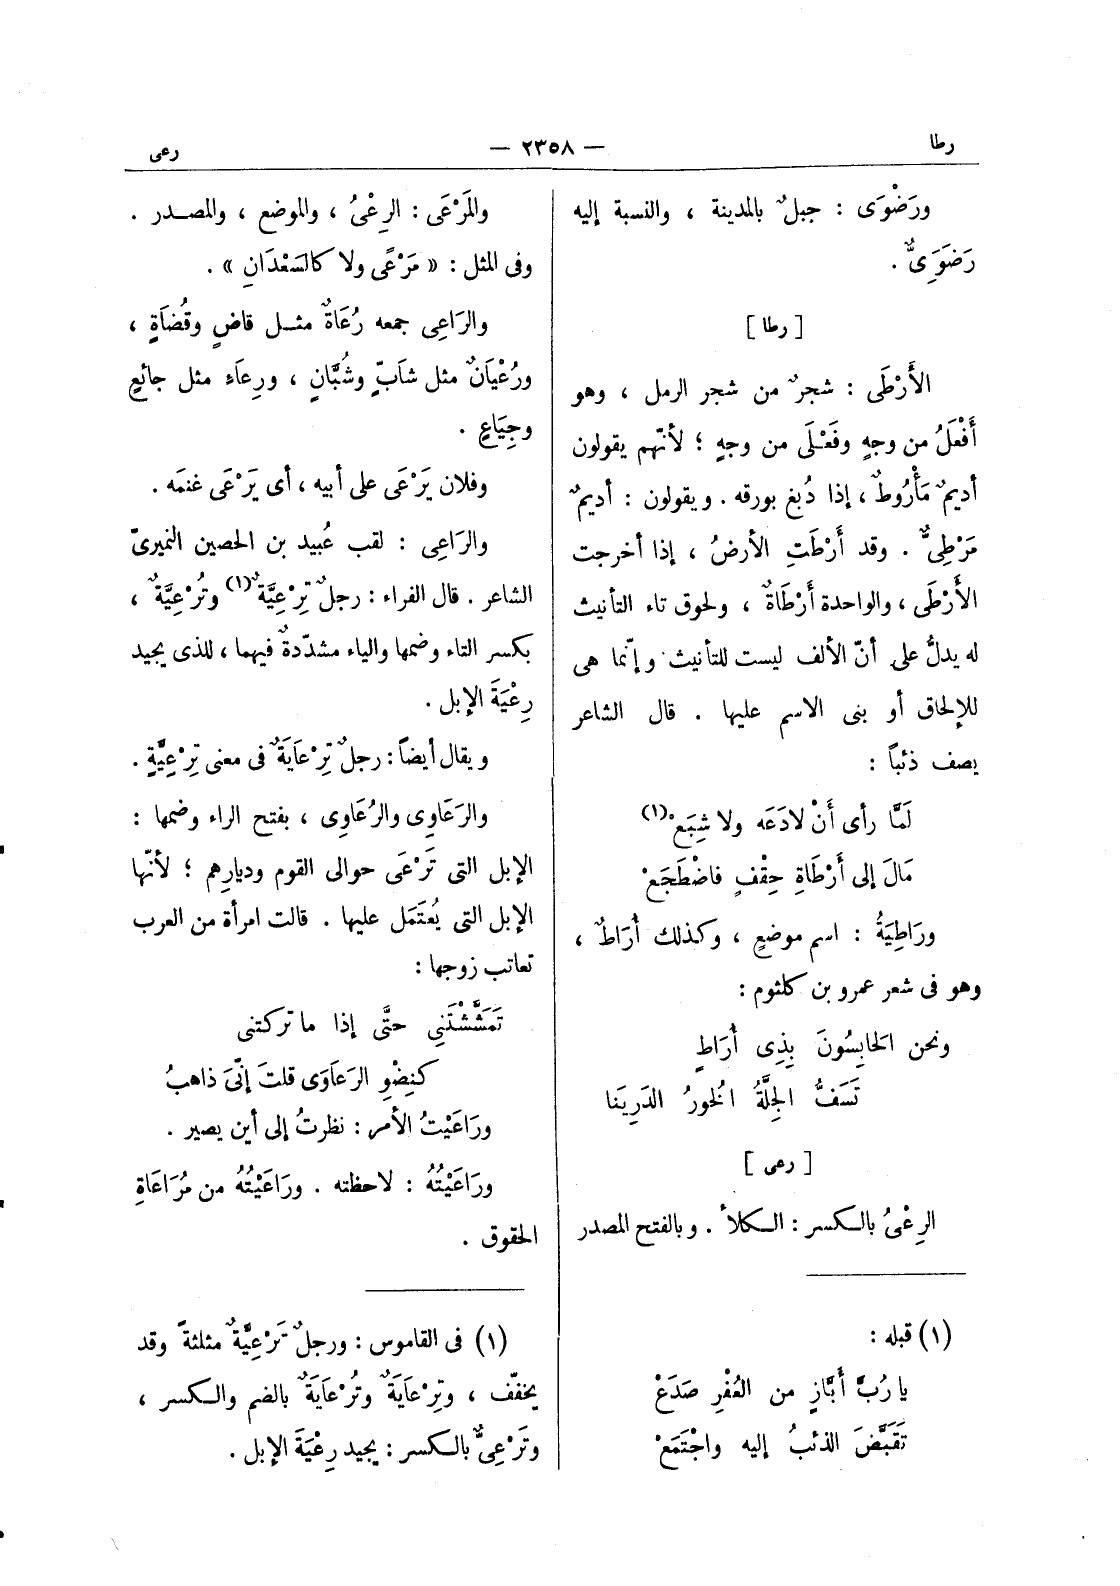 رطا
— ٢٣٥٨ —
رعى
ورَضْوَى : جبلٌ بالمدينة ، والنسبة إليه
رَضَوَىٌّ .
[ رطا ]
الأَرْطَى : شجرٌ من شجر الرمل ، وهو
أَفْعَلُ من وجهٍ وفَعْلَى من وجهٍ ؛ لأنّهم يقولون
أديمٌ مَأْرُوطٌ ، إذا دُبغ بورقه . ويقولون : أديمٌ
مَرْطِىٌّ . وقد أَرْطَتِ الأرضُ ، إذا أخرجت
الأَرْطَى ، والواحدة أَرْطَاةٌ ، ولحوق تاء التأنيث
له يدلُّ على أنّ الألف ليست للتأنيث وإنّما هى
للإلحاق أو بنى الاسم عليها . قال الشاعر
يصف ذئباً :
لَمَّا رأى أَنْ لادَعَه ولا شِبَعْ (١)
مَالَ إلى أَرْطَاةِ حِقْفٍ فاضْطَجَعْ
ورَاطِيَةُ : اسم موضعٍ ، وكذلك أُرَاطٌ ،
وهو فى شعر عمرو بن كلثوم :
ونحن الحَابِسُونَ بِذِى أُرَاطٍ
تَسَفُّ الجِلَّةُ الخُورُ الدَرِينَا
[ رعى ]
الرِعْىُ بالكسر : الكلأ . وبالفتح المصدر
(١) قبله :
يا رُبَّ أَبَّازٍ من العُفْرِ صَدَعْ
تَقَبَّضَ الذئبُ إليه واجْتَمَعْ
والمَرْعَى : الرِعْىُ ، والموضع ، والمصدر .
وفى المثل : « مَرْعًى ولا كالسَعْدَانِ » .
والرَاعِى جمعه رُعَاةٌ مثل قاضٍ وقُضَاةٍ ،
ورُعْيَانٌ مثل شابٍّ وشُبَّانٍ ، ورِعاَء مثل جائعٍ
وجِيَاعٍ .
وفلان يَرْعَى على أبيه ، أى يَرْعَى غنمَه .
والرَاعِى : لقب عُبيد بن الحصين النميرىّ
الشاعر . قال الفراء : رجلٌ تِرْعِيَّةٌ (١) وتُرْعِيَّةٌ ،
بكسر التاء وضمها والياء مشدّدةٌ فيهما ، للذى يجيد
رِعْيَةَ الإبل .
ويقال أيضاً : رجلٌ تِرْعَايَةٌ فى معنى تِرْعِيَّةٍ .
والرَعَاوِى والرُعَاوِى ، بفتح الراء وضمها :
الإبل التى تَرْعَى حوالى القوم وديارِهم ؛ لأنّها
الإبل التى يُعتَمَل عليها . قالت امرأة من العرب
تعاتب زوجها :
تَمَشَّشْتَنِى حتَّى إذا ما تركتنى
كنِضْوِ الرَعَاوَى قلتَ إنّىَ ذاهبُ
ورَاعَيْتُ الأمر : نظرتُ إلى أين يصير .
ورَاعَيْتُهُ : لاحظته . ورَاعَيْتُهُ من مُرَاعَاةِ
الحقوق .
(١) فى القاموس : ورجلٌ تَرْعِيَّةٌ مثلثةً وقد
يخفّف ، وتِرْعَايَةٌ وتُرْعَايَةٌ بالضم والكسر ،
وتَرْعِىٌّ بالكسر : يجيد رِعْيَةَ الإبل .